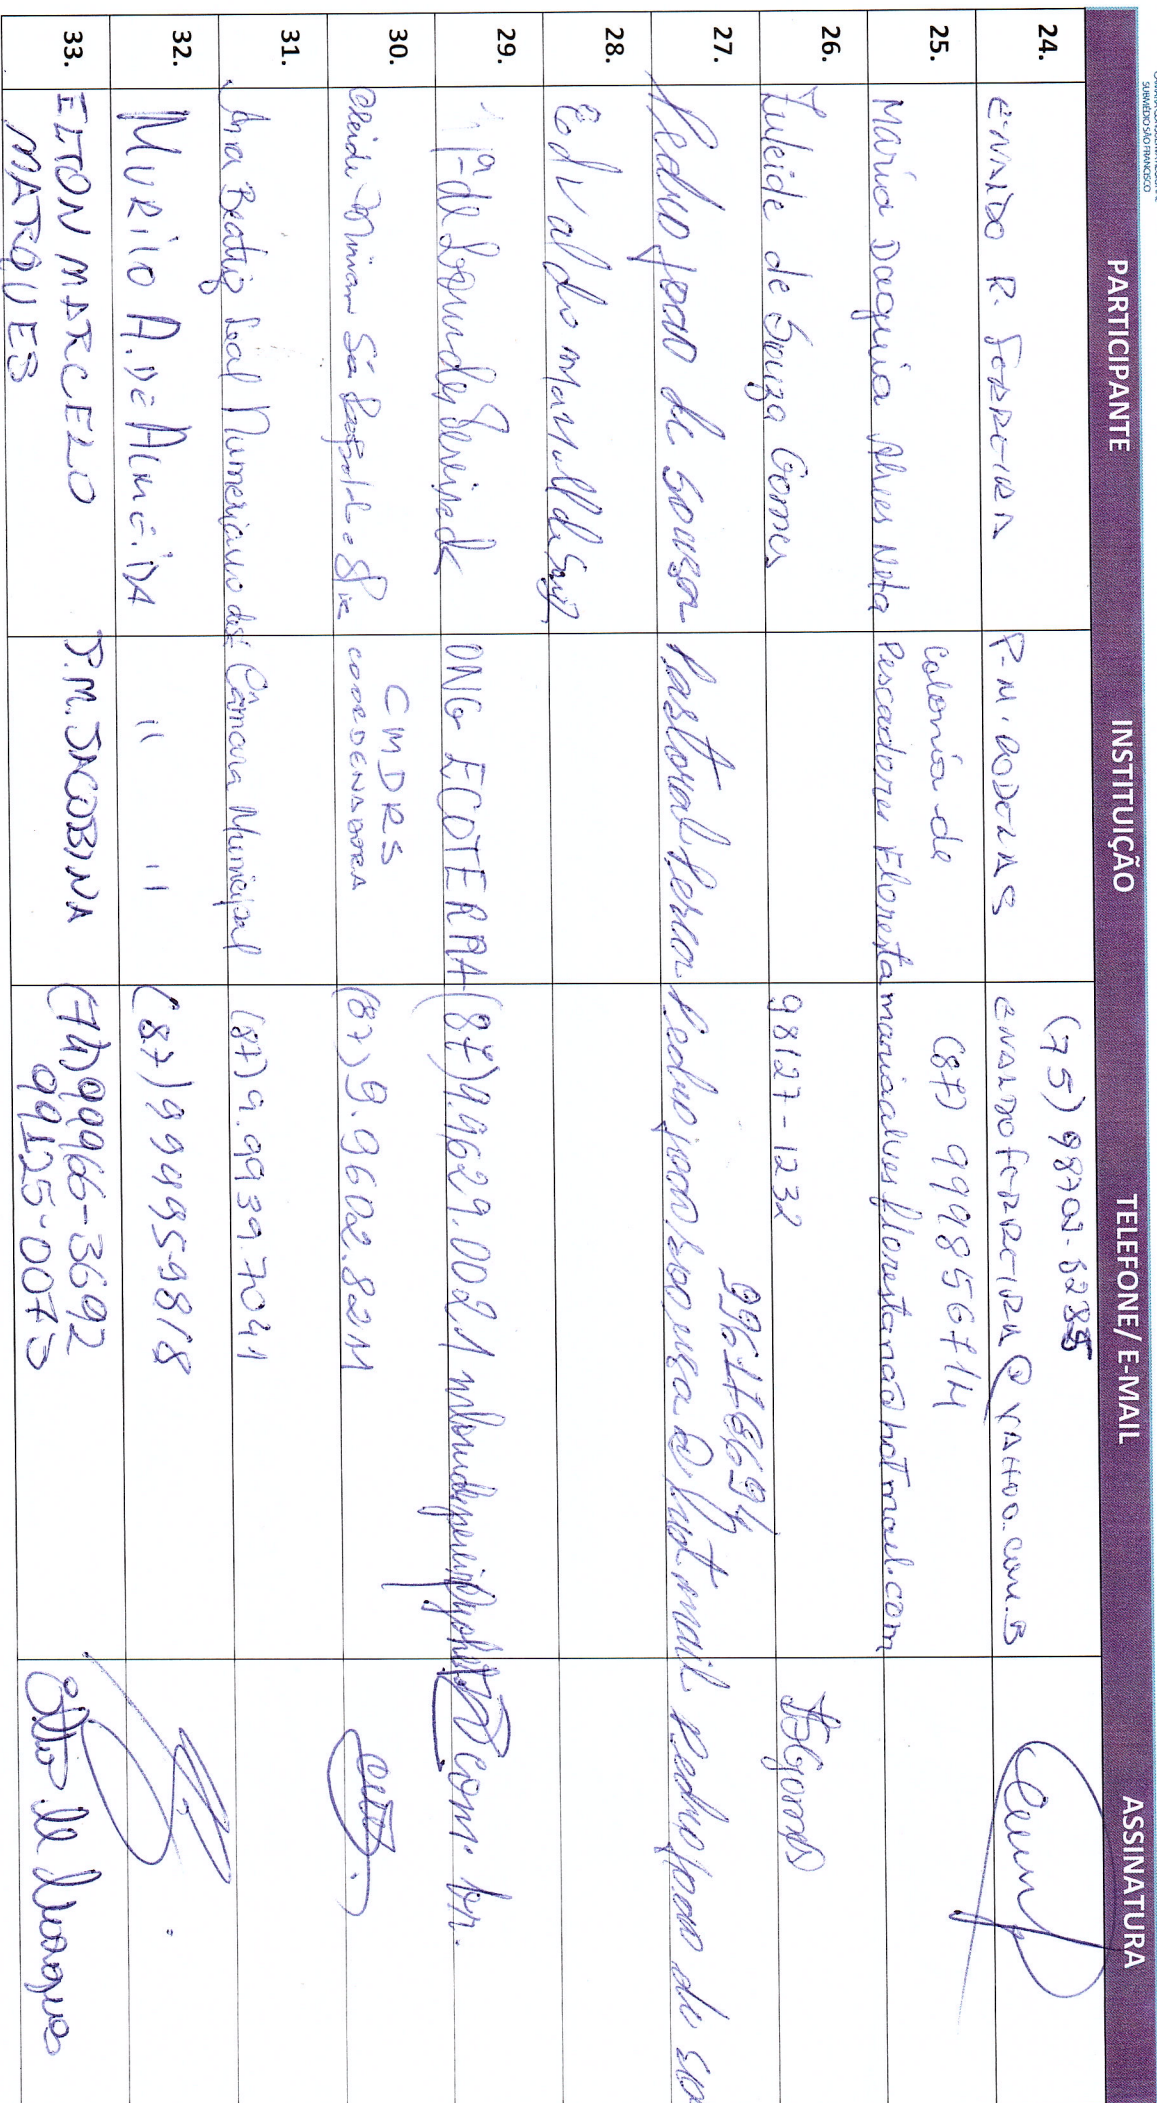 SUBMÉDIO SÃO FRANCISCO
PARTICIPANTE INSTITUIÇÃO TELEFONE/ E-MAIL ASSINATURA
24. ENALDO R. FERREIRA P.M. RODELAS (75) 98702-8285
ENALDOFERREIRA@YAHOO.COM.B
25. Maria Dacquia Alves Neta Colonia de Pescadores Floresta (87) 999856714
mariaalvesflorestanca@hotmail.com
26. Zuleide de Souza Gomes 98127-1232
27. Pedro João de Souza Pastoral 996178694
pedrojoaodesouza@hotmail Pedro João de so
28. Edvaldo
29. Mª de Lourdes ONG ECOTERRA (87)9.9629.0021 .com.br.
30. CMDRS
COORDENADORA (87) 9.9602.8211
31. Ana Beatriz Leal Numeriano de Sá Câmara Municipal (87) 9.99397041
32. MURILO A. DE ALMEIDA " " (87) 999495-9818
33. ELTON MARCELO
MARQUES P.M. JACOBINA (74) 99966-3692
99125-0073 Elton M Marques